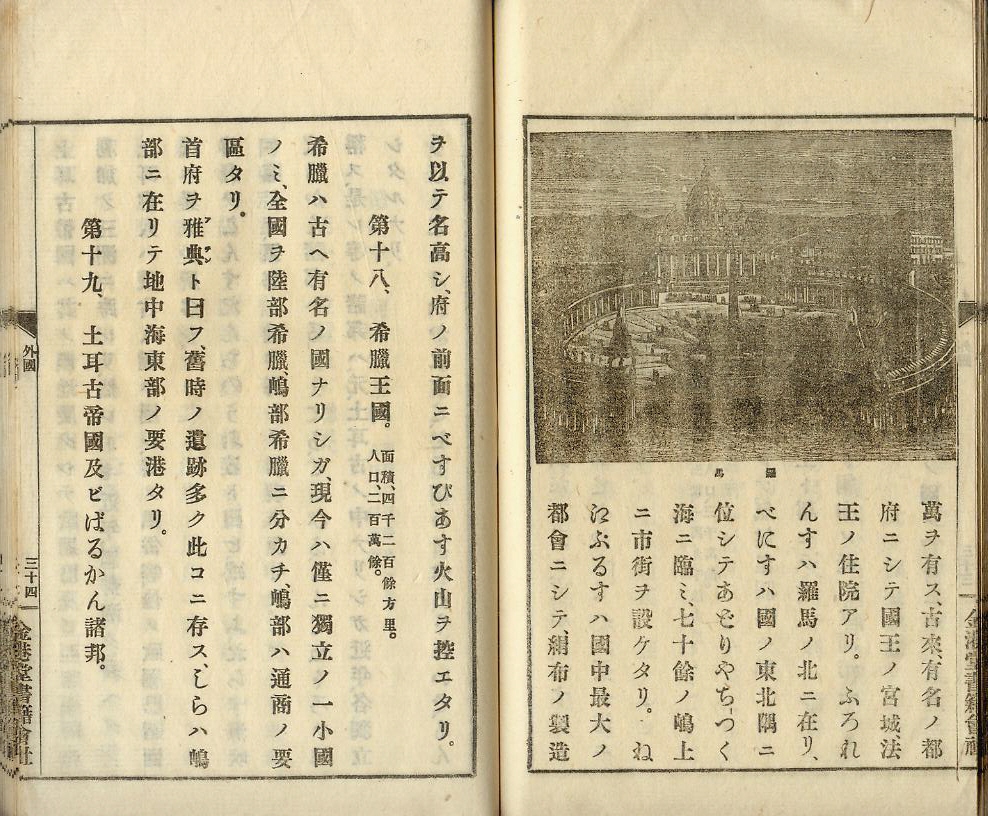 羅馬
萬ヲ有ス、古來有名ノ都
府ニシテ國王ノ宮城法
王ノ住院アリ。ふろれ
んすハ羅馬ノ北ニ在リ、
べにすハ國ノ東北隅ニ
位シテあどりやちつく
海ニ臨ミ、七十餘ノ嶋上
ニ市街ヲ設ケタリ。ね
いぶるすハ國中最大ノ
都會ニシテ、絹布ノ製造
金港堂書籍會社
ヲ以テ名高シ、府ノ前面ニべすびあす火山ヲ控エタリ。
第十八、希臘王國。
面積四千二百餘方里。
人口、二百萬餘。
希臘ハ古ヘ有名ノ國ナリシガ、現今ハ僅ニ獨立ノ一小國
ノミ、全國ヲ陸部希臘、嶋部希臘ニ分カチ、嶋部ハ通商ノ要
區タリ。
首府ヲ雅典ト曰フ、舊時ノ遺跡多ク此コニ存ス、しらハ嶋
部ニ在リテ地中海東部ノ要港タリ。
第十九、土耳古帝國及ビばるかん諸邦。
外國
三十四
金港堂書籍會社